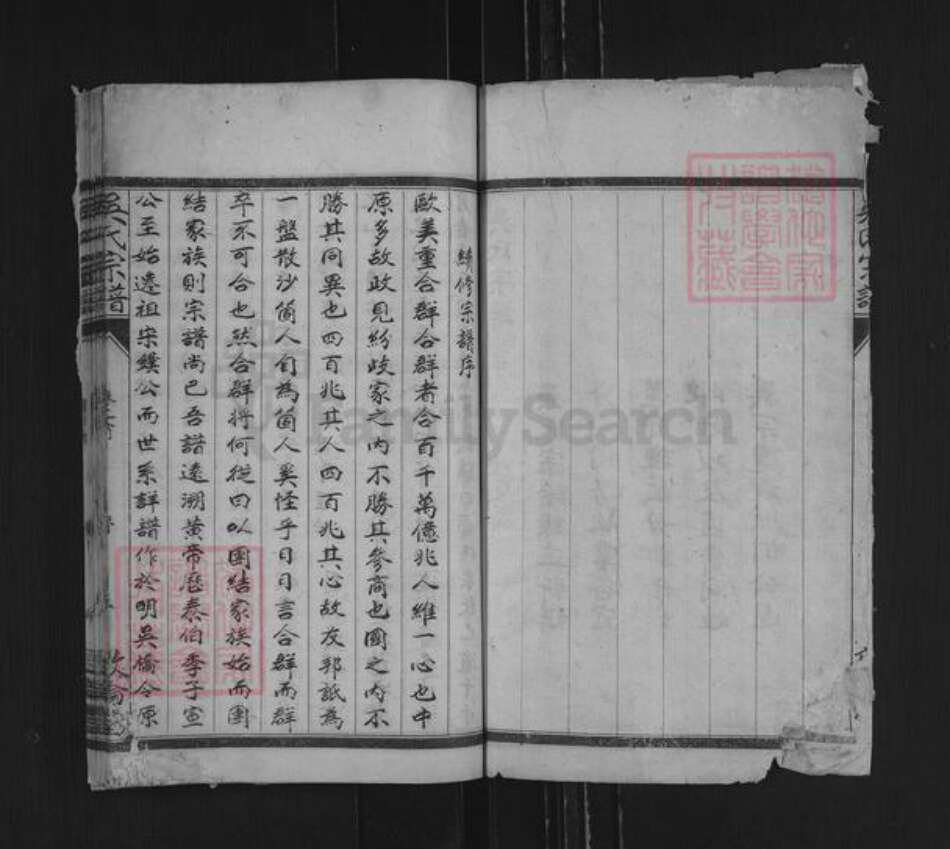 續修宗譜序
歐美重合群合群者合百千萬億兆人維一心也中
原多故政見紛歧家之內不勝其參商也國之內不
勝其同異也四百兆其人四百兆其心故友邦詆為
一盤散沙箇人自為箇人奚怪乎日日言合群而群
卒不可合也然合群將何從曰以團結家族始而團
結家族則宗譜尚已吾譜遠溯黃帝歷泰伯季子宣
公至始遷祖宋鏷公而世系詳譜作於明吳僑令原
吳氏宗譜
吳氏宗譜
FamilySearch